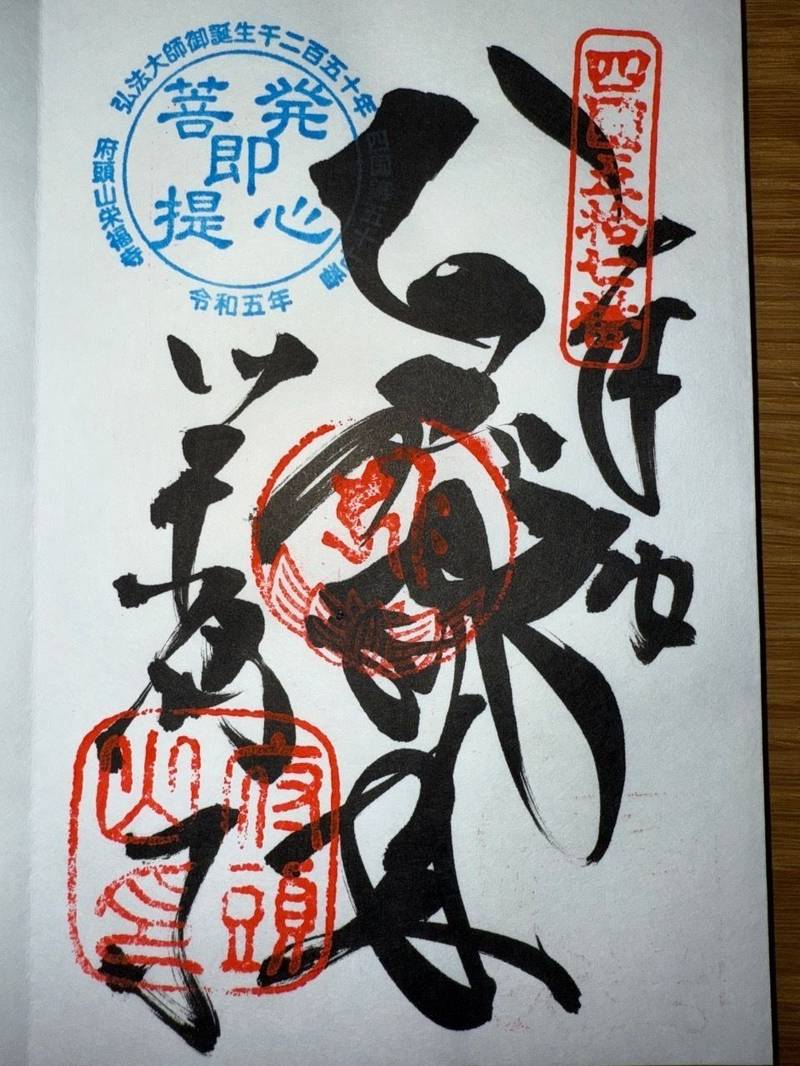 四國五拾七番
奉納
栄福寺
弘法大師御誕生千二百五十年
四國第五十七番
府頭山栄福寺
令和五年
発心
即
菩提
府頭
山